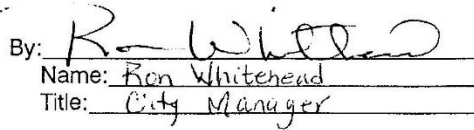 By: Ron Whitehead
Name: Ron Whitehead
Title: City Manager